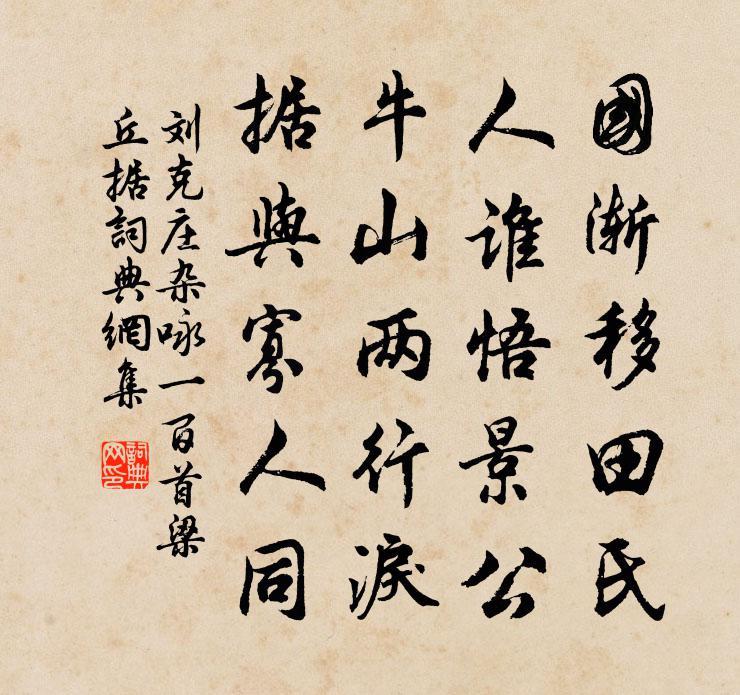 國漸移田氏
人誰悟景公
牛山两行淚
据與寡人同
刘克庄杂咏一百首梁
丘据詞典網集
詞典网印